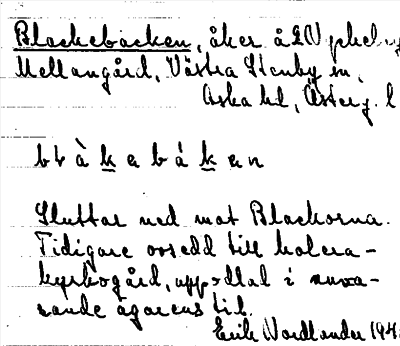 Blackebacken, åker å
Mellangård, Västra Stenby sn,
Aska hd, Österg. l
b l à k e b á k e n
Sluttar ned mot Blackorna.
Tidigare avsedd till kolera-
kyrkogård, uppodlad i nuva-
rande ägarens tid.
Erik Nordlander 194